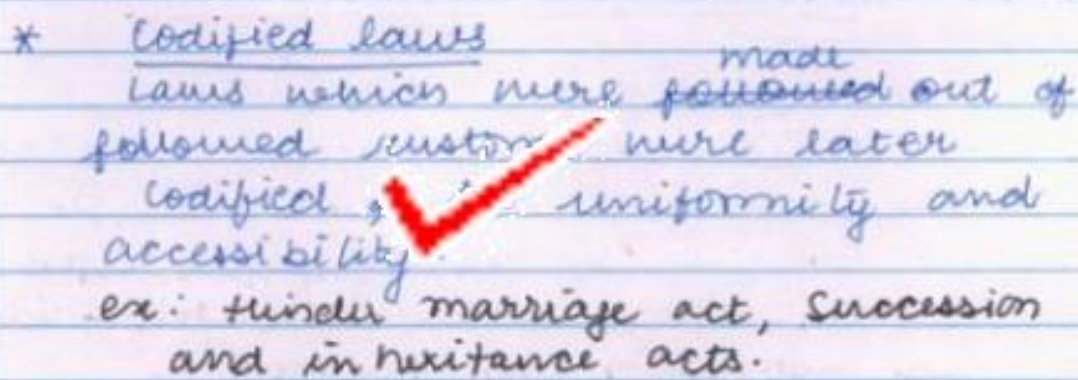 * Codified laws
made
Laws which were followed out of
followed custom were later
codified, uniformity and
accessibility.
ex: Hindu marriage act, Succession
and inheritance acts.